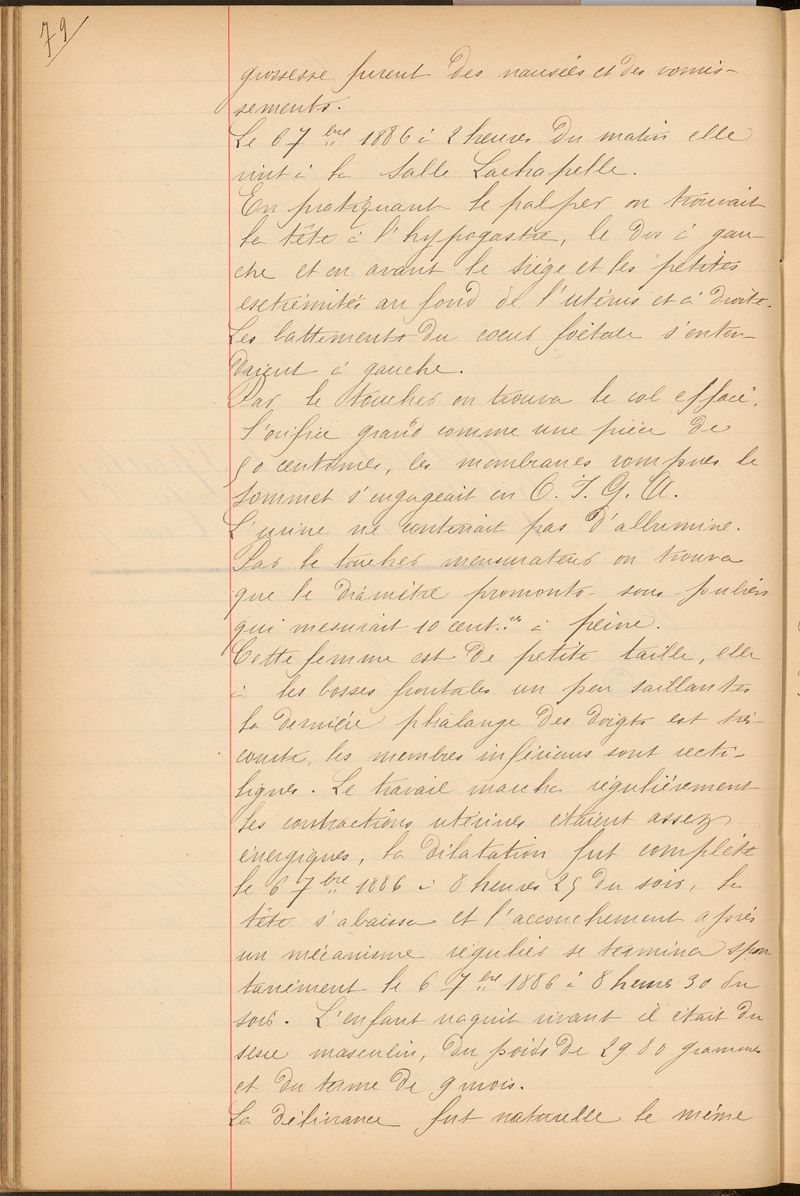 79
grossesse furent des nausées et des vomis-
sements.
Le 6 7bre 1886 à 2 heures du matin elle
vint à la salle Lachapelle.
En pratiquant le palper on trouvait
la tête à l'hypogastre, le dos à gau-
che et en avant le siège et les petites
extrémités au fond de l'utérus et à droite.
Les battements du coeur foetale s'enten-
daient à gauche.
Par le toucher on trouva le col effacé,
l'orifice grand comme une pièce de
50 centimes, les membranes rompues le
sommet s'engageait en O. I. G. A.
L'urine ne contenait pas d'albumine.
Par le toucher mensurateur on trouva
que le diamètre promonto-sous-pubien
qui mesurait 10 cent.es à peine.
Cette femme est de petite taille, elle
à les bosses frontales un peu saillantes
la dernière phalange des doigts est très
courte, les membres inférieurs sont recti-
lignes. Le travail marcha régulièrement
les contractions utérines étaient assez
énergiques, la dilatation fut complète
le 6 7bre 1886 à 8 heures 25 du soir, la
tête s'abaissa et l'accouchement après
un mécanisme régulier se termina spon
tanément le 6 7bre 1886 à 8 heures 30 du
soir. L'enfant naquit vivant il était du
sexe masculin, du poids de 2980 grammes
et du terme de 9 mois.
La délivrance fut naturelle le même